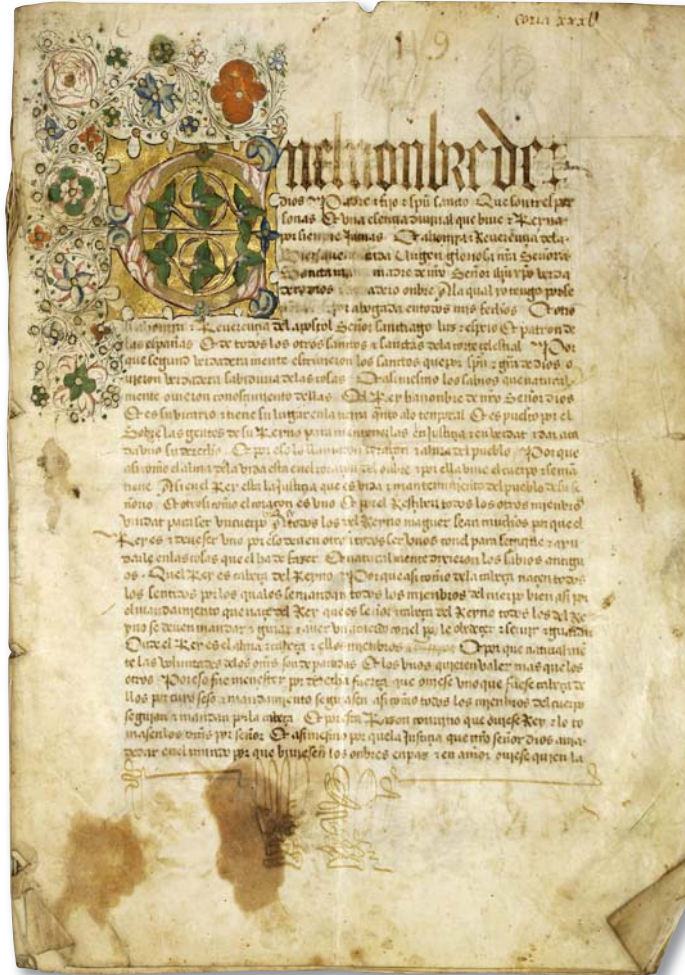 Coria xxxij
19
En el nonbre de
Dios Padre e fijo e spũ santo Que son tres per
sonas Et una esençia diuinal que biue e Reyna
por sienpre jamas Et a honrra e Reuerençia de la
Virgen gloriosa nr̃a Señora
Santa maria madre de nr̃o Señor ihũ xp̃o verda
dero dios verdadero onbre A la qual yo tengo por Se
ñora e por abogada en todos mis fechos Et otro
si a honrra e Reuerençia del apostol Señor santiago lus e espejo Et patron de
las españas Et de todos los otros santos e santas de la corte çelestial Por
que segund verdadera mente escriuieron los santos que por spũ e gr̃a de dios o
uieron verdadera sabiduria de las cosas Et asimesmo los sabios que natural
mente ouieron conosçimiento dellas El Rey ha nonbre de nr̃o Señor dios
Et es su vicario e tiene su lugar en la tierra quanto a lo tenporal Et es puesto por el
Sobre las gentes de su Reyno para mantenerlas en justiçia e en verdat e dar a ca
da vno su derecho Et por eso lo llamaron coraçon e alma del pueblo Por que
asi como el alma de la vida esta en el coraçon del onbre e por ella biue el cuerpo e se man
tiene Asi en el Rey esta la justiçia que es vida e mantenimiento del pueblo de su se
ñorio Et otrosi como el coraçon es vno Et por el Resçiben todos los otros mienbros
vnidat para ser vn cuerpo A todos los del Reyno maguer sean muchos por que el
Rey es e deue ser vno por eso deuen otro si todos ser vnos con el para seruirle e ayu
darle en las cosas que el ha de fazer Et natural mente dixieron los sabios antigu
os Quel Rey es cabeça del Reyno Por que asi como de la cabeça naçen todos
los sentidos por los quales se mandan todos los mienbros del cuerpo bien asi por
el mandamiento que naçe del Rey que es señor e cabeça del Reyno todos los del Re
yno se deuen mandar e guiar e auer vn acuerdo con el para le obedeçer e seruir e guardar
Onde el Rey es el alma e cabeça e ellos mienbros Et por que natural men
te las voluntades de los omẽs son departidas Et los vnos quieren valer mas que los
otros Por eso fue menester por derecha fuerça que ouiese vno que fuese cabeça de
llos por cuyo seso e mandamiento se guiasen asi como todos los mienbros del cuerpo
se guian e mandan por la cabeça Et por esta Rason conuino que ouiese Rey e lo to
masen los omẽs por señor Et asimesmo por que la Justiçia que nr̃o señor dios auia
de dar en el mundo por que biuiesen los onbres en pas e en amor ouiese quien la